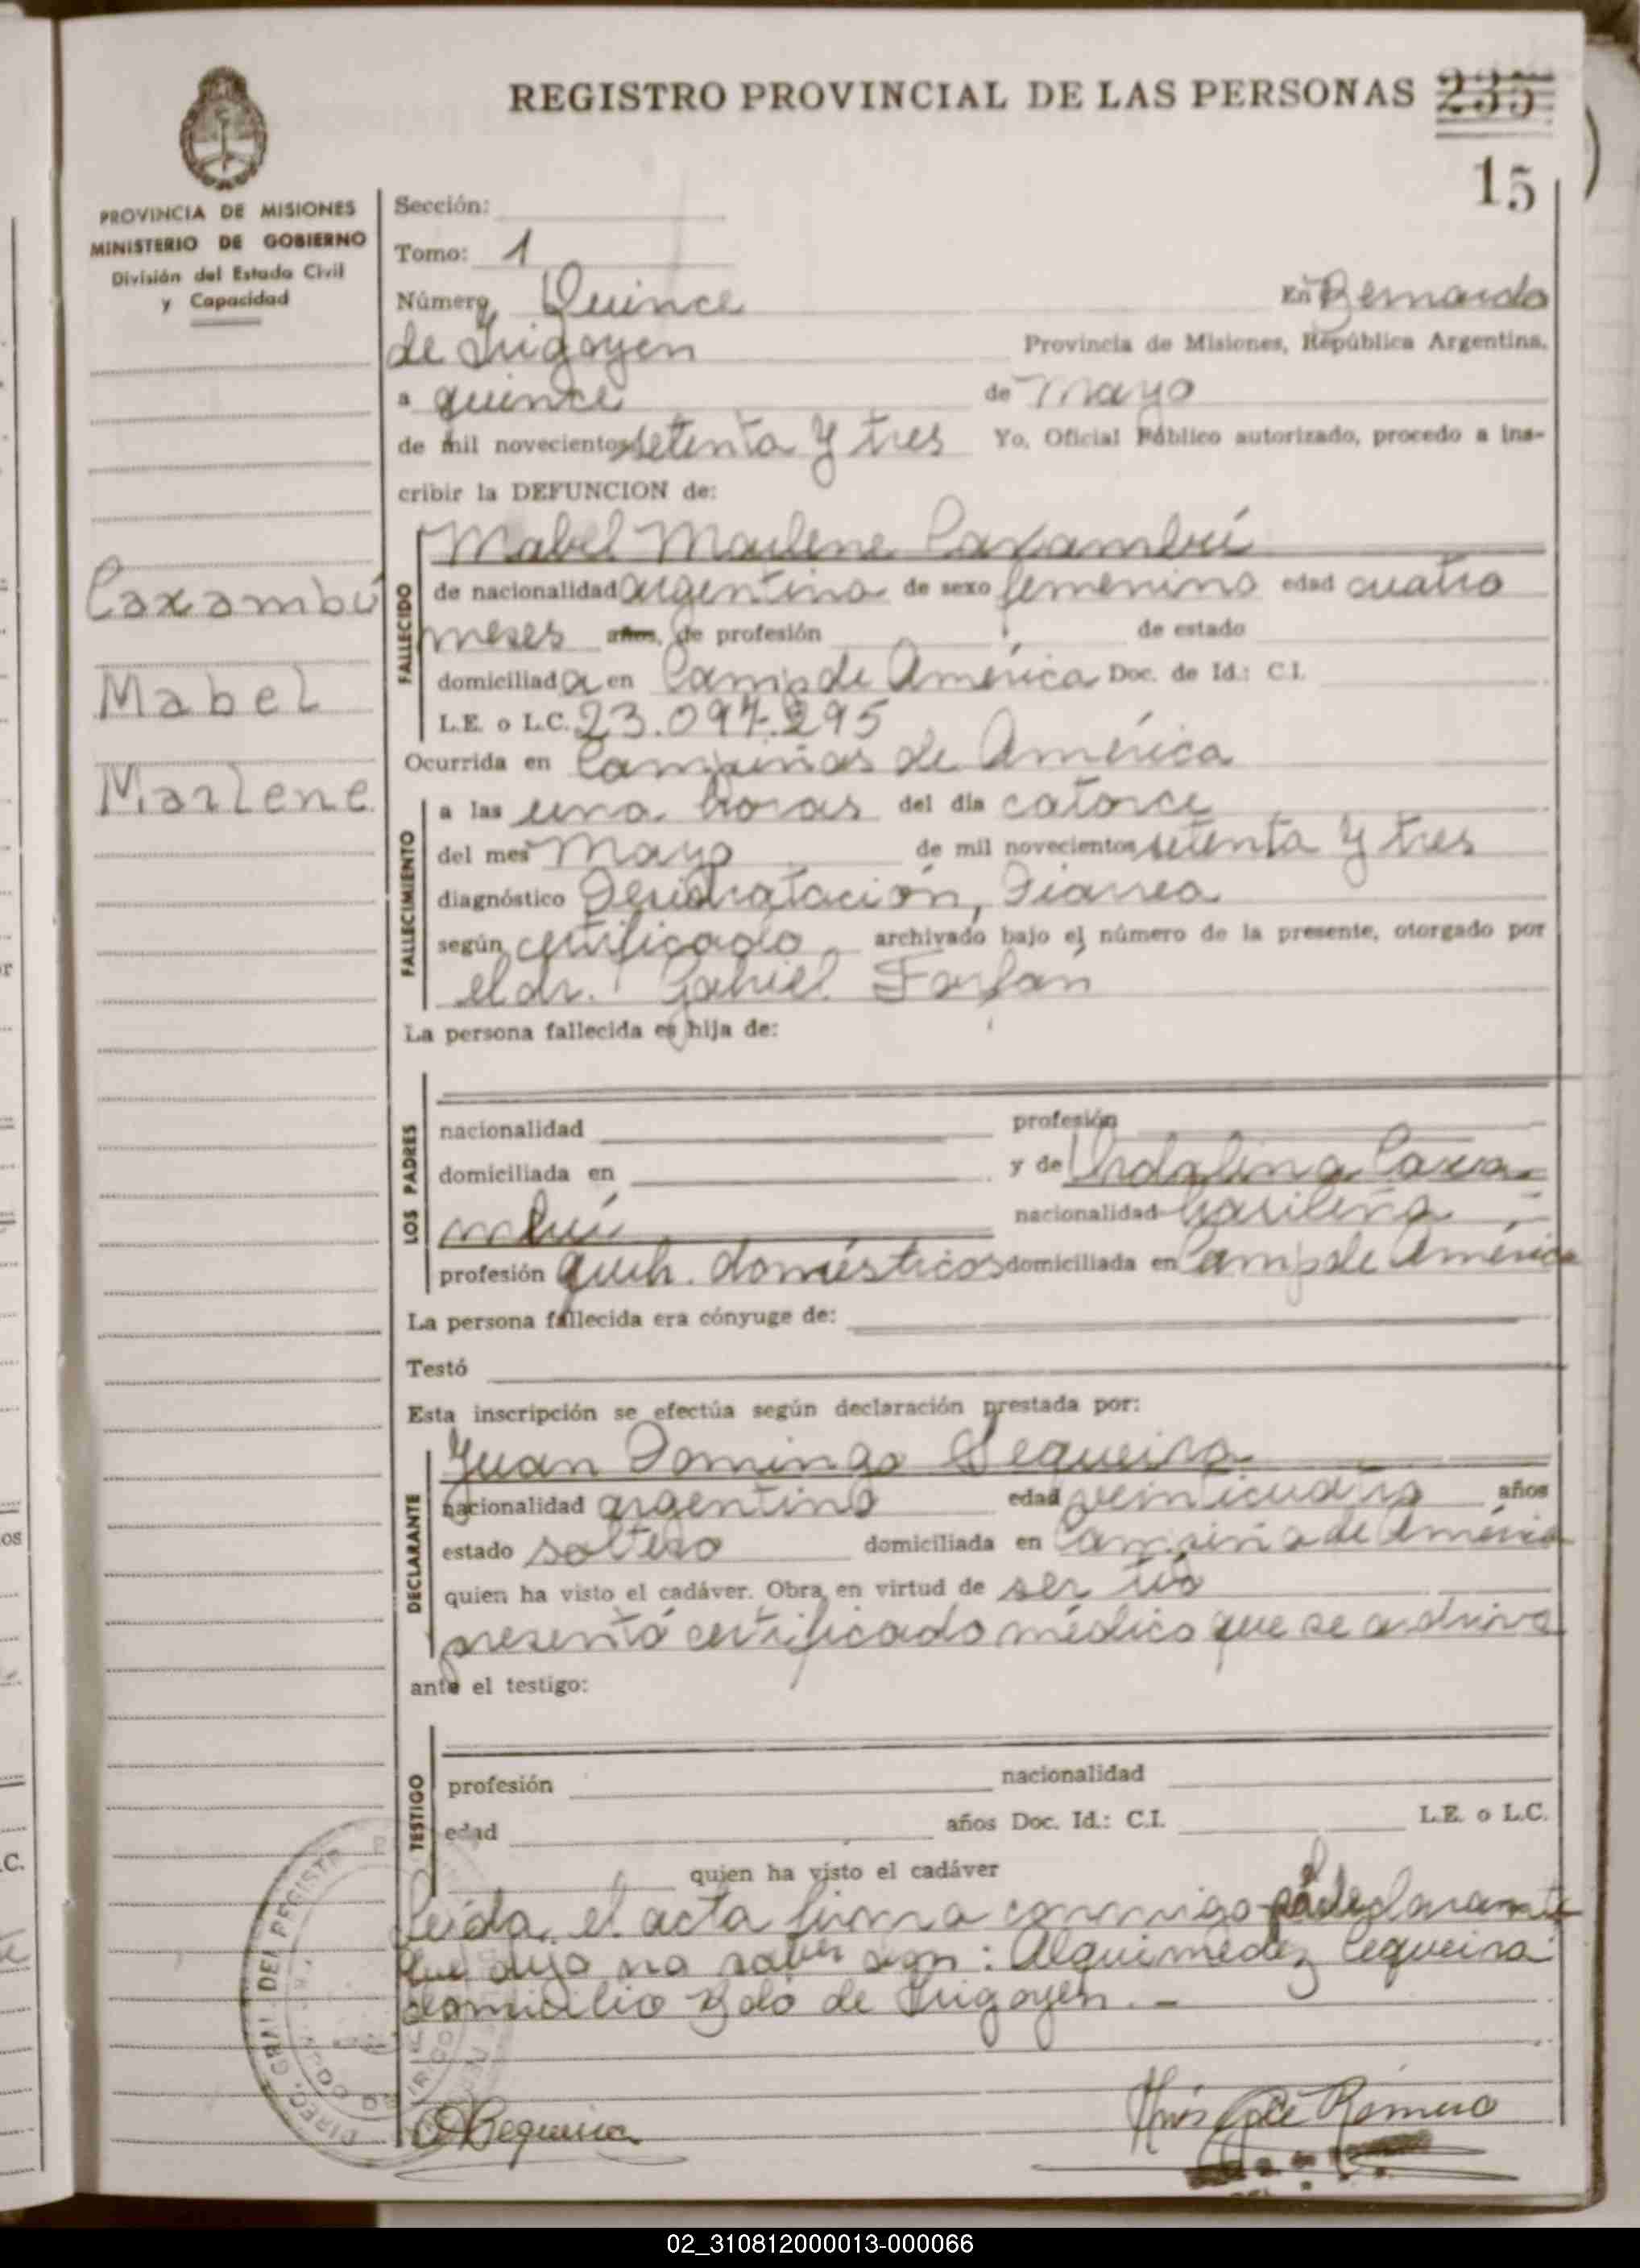 REGISTRO PROVINCIAL DE LAS PERSONAS 235
15
PROVINCIA DE MISIONES
MINISTERIO DE GOBIERNO
División del Estado Civil
y Capacidad
Caxambú
Mabel
Marlene
Sección:
Tomo: 1
Número, Quince En Bernardo
de Irigoyen Provincia de Misiones, República Argentina.
a quince de Mayo
de mil novecientos setenta y tres Yo, Oficial Público autorizado, procedo a ins-
cribir la DEFUNCION de:
FALLECIDO
Mabel Marlene Caxambú
de nacionalidad argentina de sexo femenino edad cuatro
meses años, de profesión de estado
domiciliada en Camp de América Doc. de Id.: C.I.
L.E. o L.C. 23.097.295
Ocurrida en Campiñas de América
FALLECIMIENTO
a las una horas del día catorce
del mes Mayo de mil novecientos setenta y tres
diagnóstico Desidratación, Diarrea
según certificado archivado bajo el número de la presente, otorgado por
el dr. Gabriel Farfán
La persona fallecida es hija de:
LOS PADRES
nacionalidad profesión
domiciliada en y de Caxa
mbú nacionalidad brasileña
profesión queh. domésticos domiciliada en Camp de América
La persona fallecida era cónyuge de:
Testó
Esta inscripción se efectúa según declaración prestada por:
DECLARANTE
Juan Domingo Sequeira
nacionalidad argentino edad veinticuatro años
estado soltero domiciliada en Campiña de América
quien ha visto el cadáver. Obra en virtud de ser tío
presentó certificado médico que se archiva
ante el testigo:
TESTIGO
profesión nacionalidad
edad años Doc. Id.: C.I. L.E. o L.C.
quien ha visto el cadáver
Leida, el acta firma conmigo el declarante
que dijo no saber Alquimedez Cequeira
domicilio Bdo de Irigoyen. -
DIREC. GRAL. DEL REGISTR
Sequeira
Romero
02_310812000013-000066